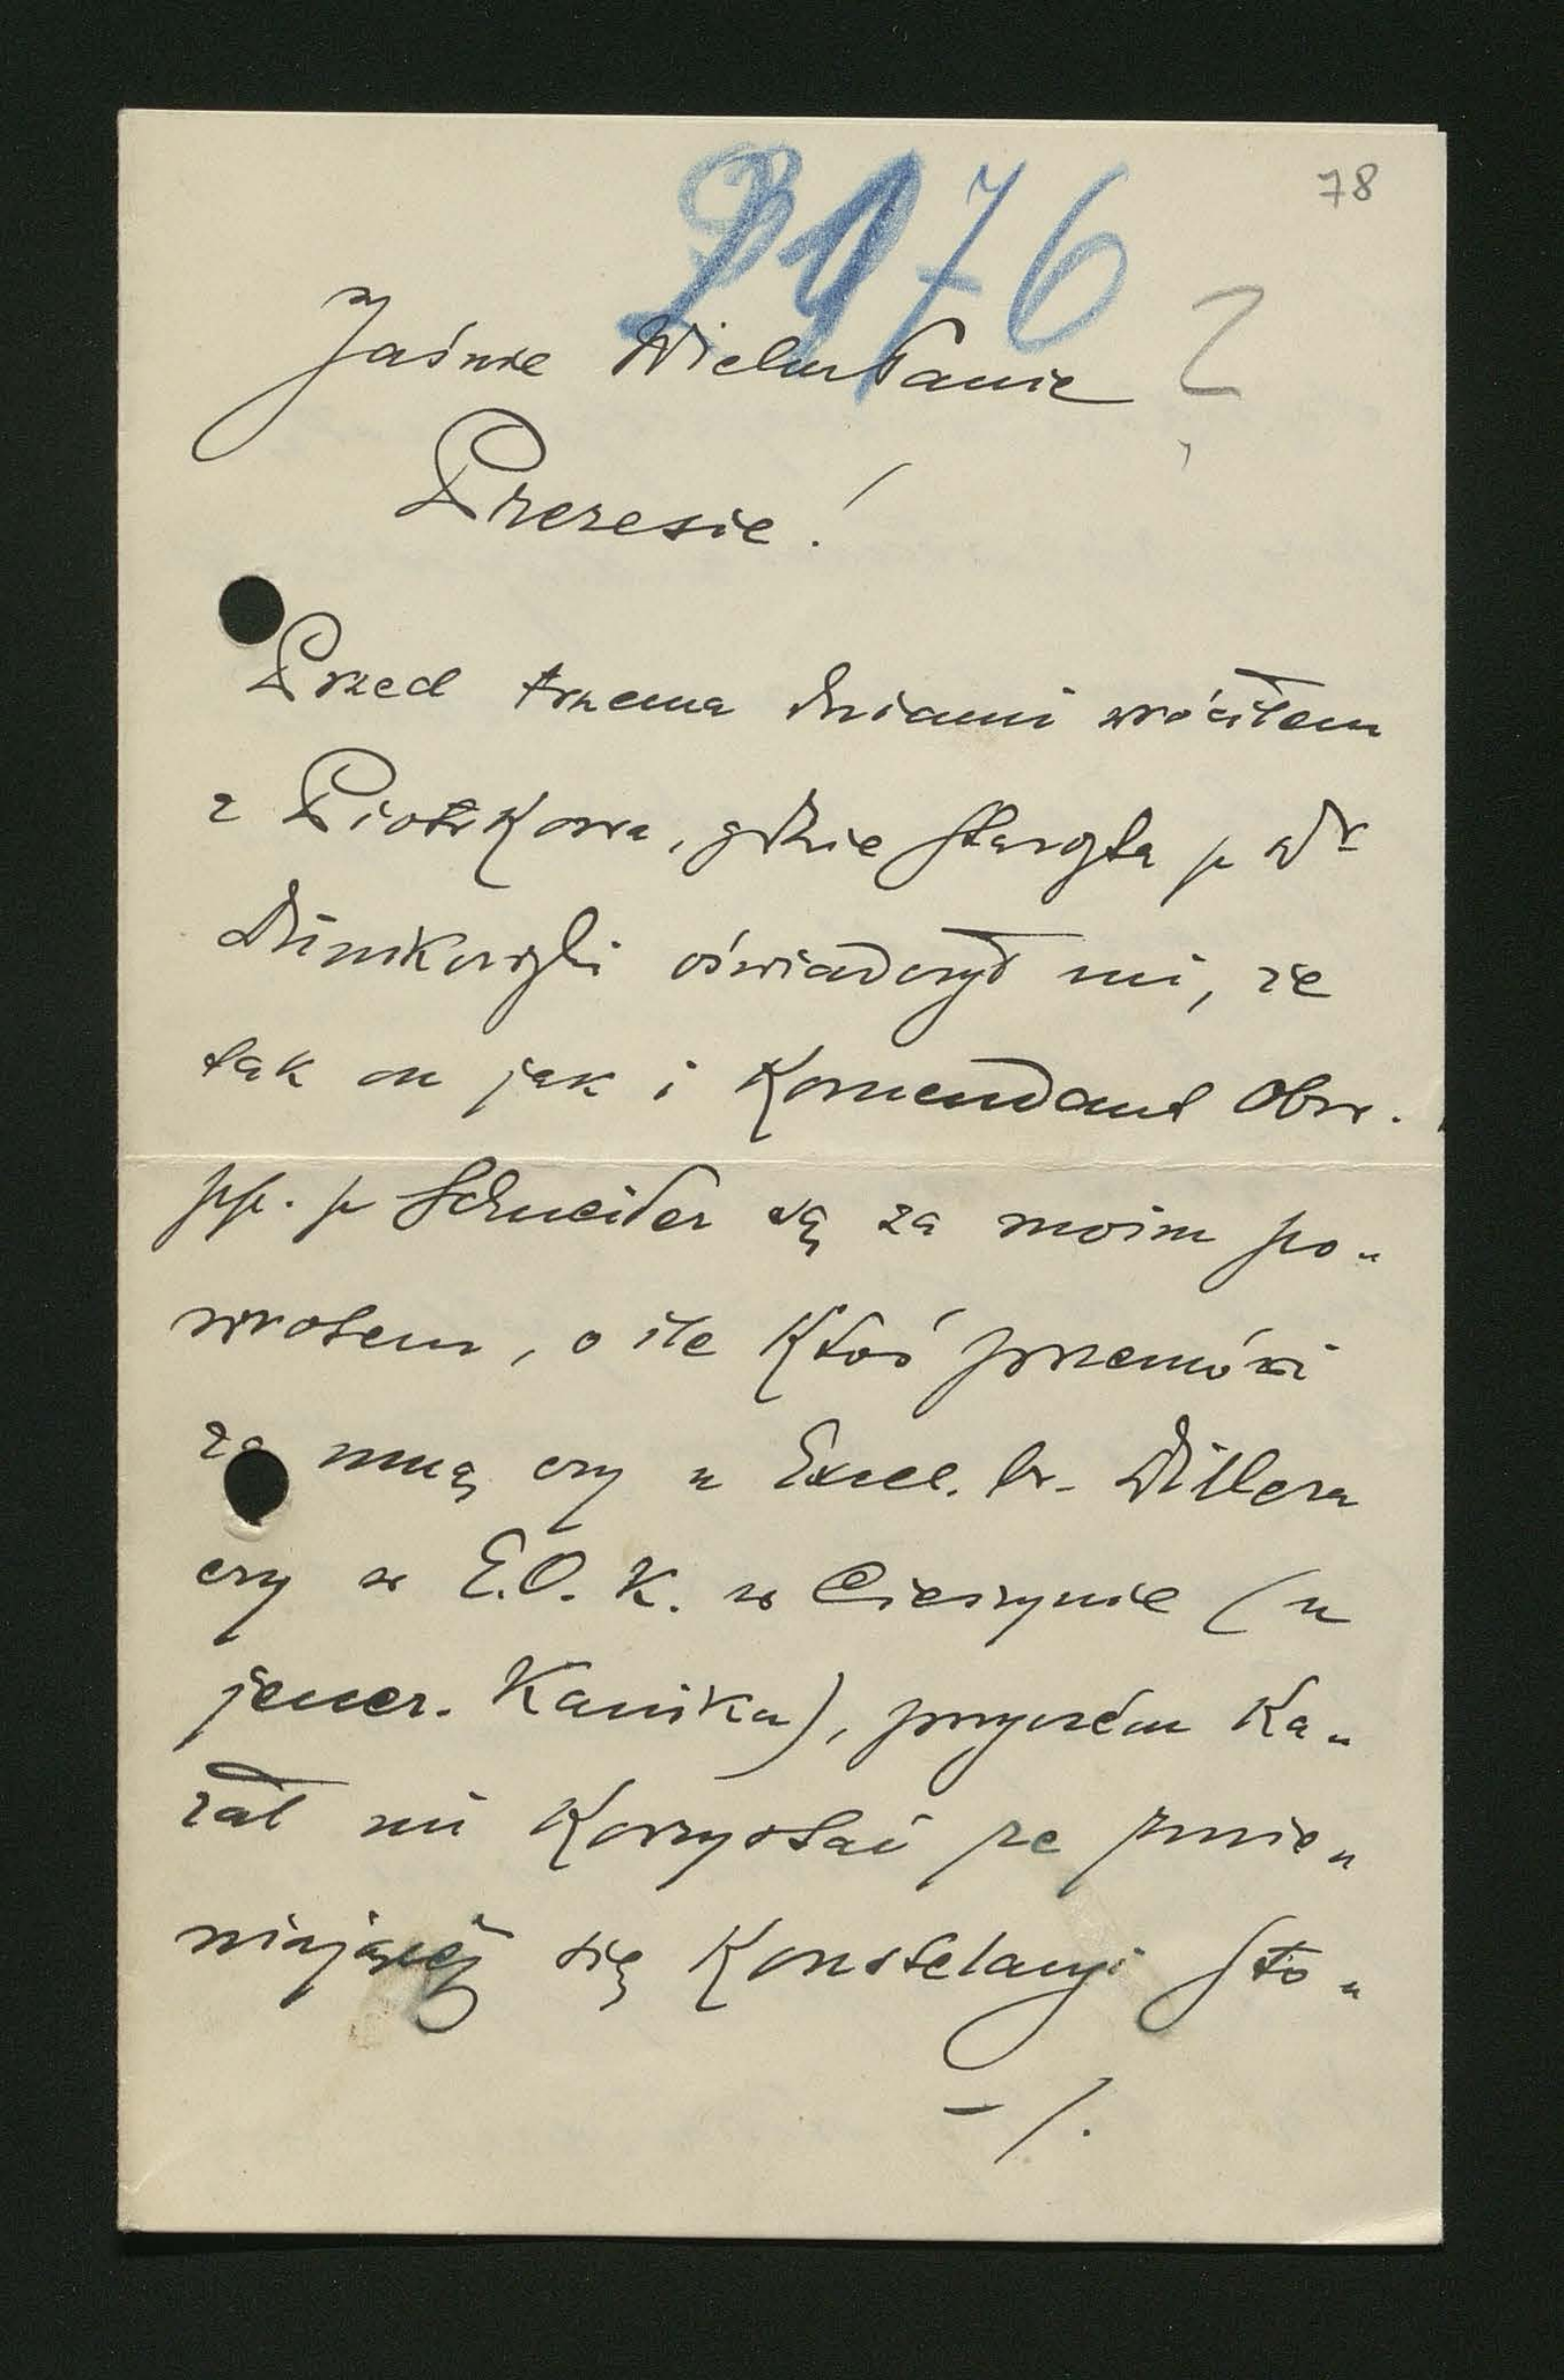 78
2976
Jaśnie Wielm Panie
Prezesie!
Przed trzema dniami wróciłem
z Piotrkowa, gdzie starosta p Dr
Dunikowski oświadczył mi, że
tak on jak i Komendant obw.
pp. p Schneider są za moim po„
wrotem, o ile Ktoś przemówi
za mną czy u Excel. br. Dillera
czy w E.O.K. w Cieszynie (u
jener. Kanika), przyczém Ka„
zał mi Korzystać ze zmie„
niającej się Konstelacyi sto„
- /.